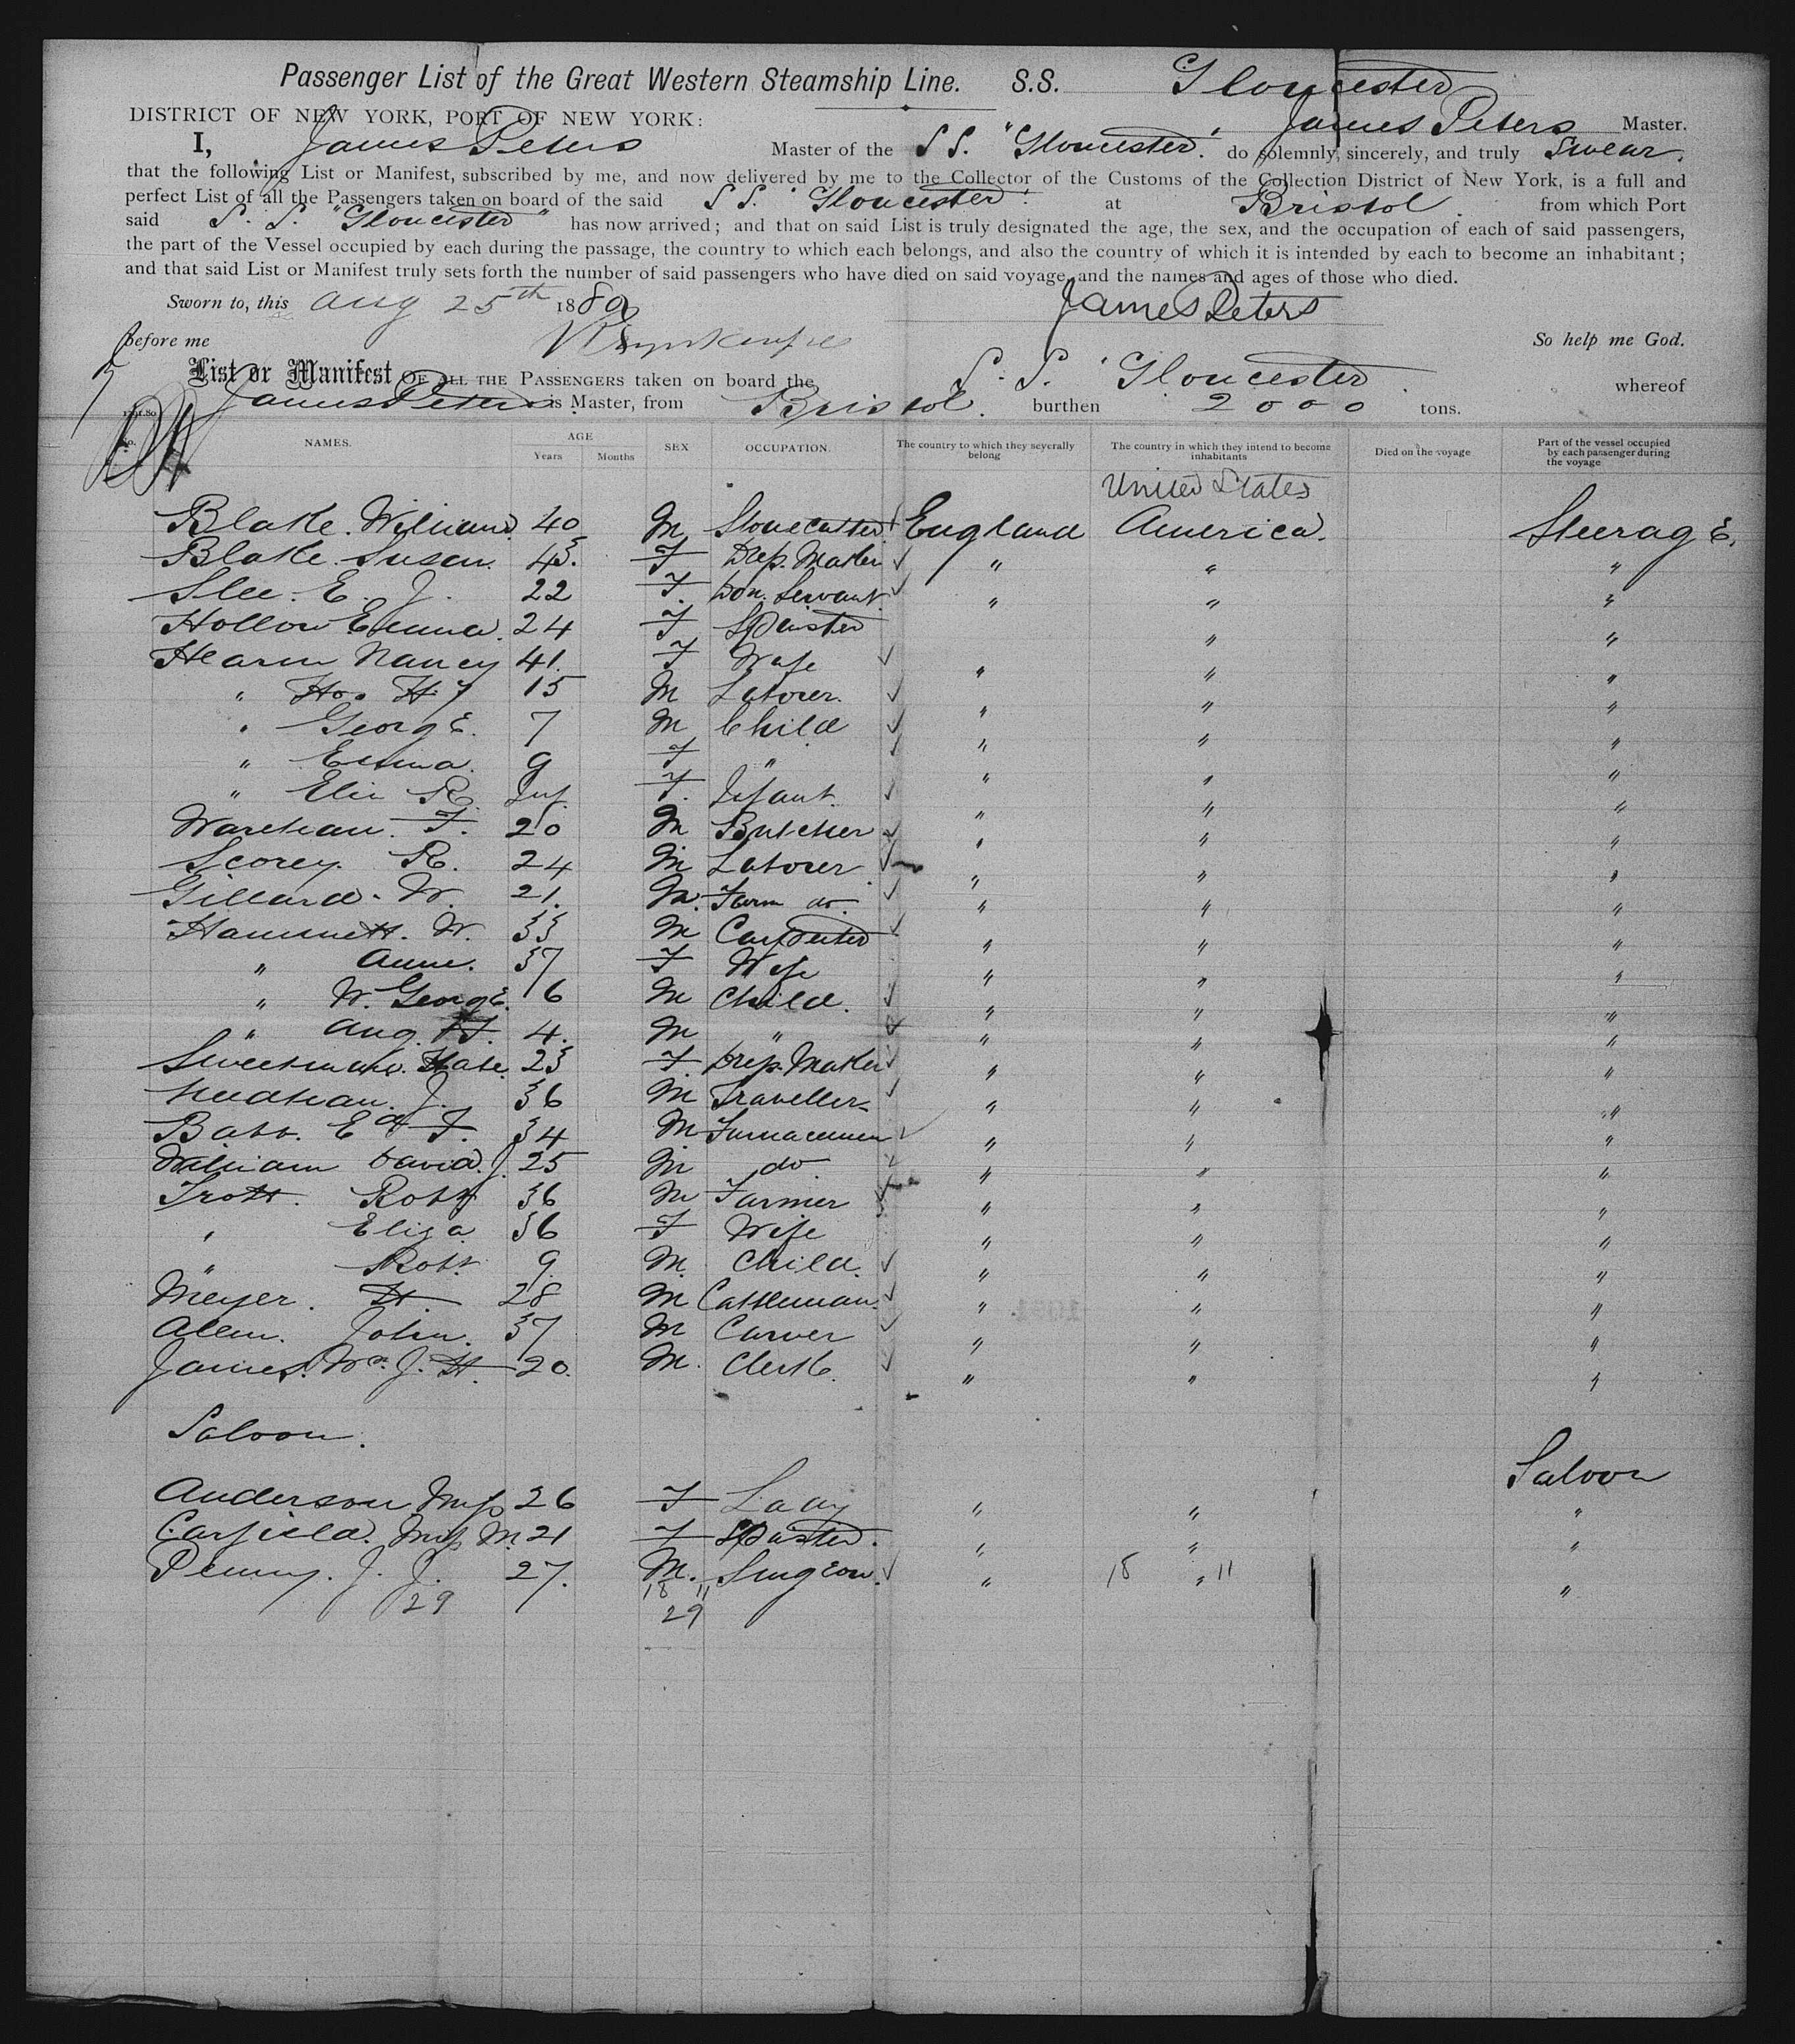 Passenger List of the Great Western Steamship Line. S.S. Gloucester
DISTRICT OF NEW YORK, PORT OF NEW YORK: James Peters Master.
I, James Peters Master of the S S. "Gloucester". do solemnly, sincerely, and truly Swear.
that the following List or Manifest, subscribed by me, and now delivered by me to the Collector of the Customs of the Collection District of New York, is a full and
perfect List of all the Passengers taken on board of the said S S. "Gloucester". at Bristol. from which Port
said S. S. "Gloucester" has now arrived; and that on said List is truly designated the age, the sex, and the occupation of each of said passengers,
the part of the Vessel occupied by each during the passage, the country to which each belongs, and also the country of which it is intended by each to become an inhabitant;
and that said List or Manifest truly sets forth the number of said passengers who have died on said voyage, and the names and ages of those who died.
Sworn to, this Aug 25th 188 James Peters
Before me So help me God.
List or Manifest OF ALL THE PASSENGERS taken on board the S. S. "Gloucester. whereof
James Peters. is Master, from Bristol. burthen 2000 tons.
No. NAMES. AGE Years Months SEX OCCUPATION. The country to which they severally belong The country in which they intend to become inhabitants Died on the voyage Part of the vessel occupied by each passenger during the voyage
United States
Blake. William. 40 M Stonecutter. England America. Steerage.
Blake. Susan. 43. F Dress Maker " " "
Slee. E. J. 22 F. Dom. Servant. " " "
Hollow Emma. 24 F Spinster " "
Hearn Nancy 41. F Wife " " "
" Hy 15 M Laborer. " " "
" George. 7 M Child " " "
" Emma. 9 F " " " "
" R. Inf. F. Infant. " " "
Wareham. F. 20 M Butcher " " "
Scorey. R. 24 M Laborer " " "
Gillard. W. 21. M. Farm do. " " "
Hammett. W. 33 M Carpenter " " "
" Anne. 37 F Wife " " "
" W. George. 6 M Child. " " "
" Aug. H. 4. M " " " "
Kate. 23 F. Dress Maker " " "
Needham. J. 36 M Traveller " " "
Babb. Ed F. 34 M Furnaceman " " "
William David. J. 25 M do " " "
Trott. Robt 36 M Farmer " " "
" Eliza 36 F Wife " " "
" Robt. 9. M. Child. " " "
Meyer. H. 28 M Cattleman. " " "
Allen. John. 37 M Carver " " "
James. Wm. J. H. 20. M. Clerk. " " "
Saloon. Saloon
Anderson Miss 26 F Lady " " "
Miss M. 21 F Spinster. " " "
Penny. J. J. 27. M. Surgeon. " 18 " 11 "
29 18 11
29